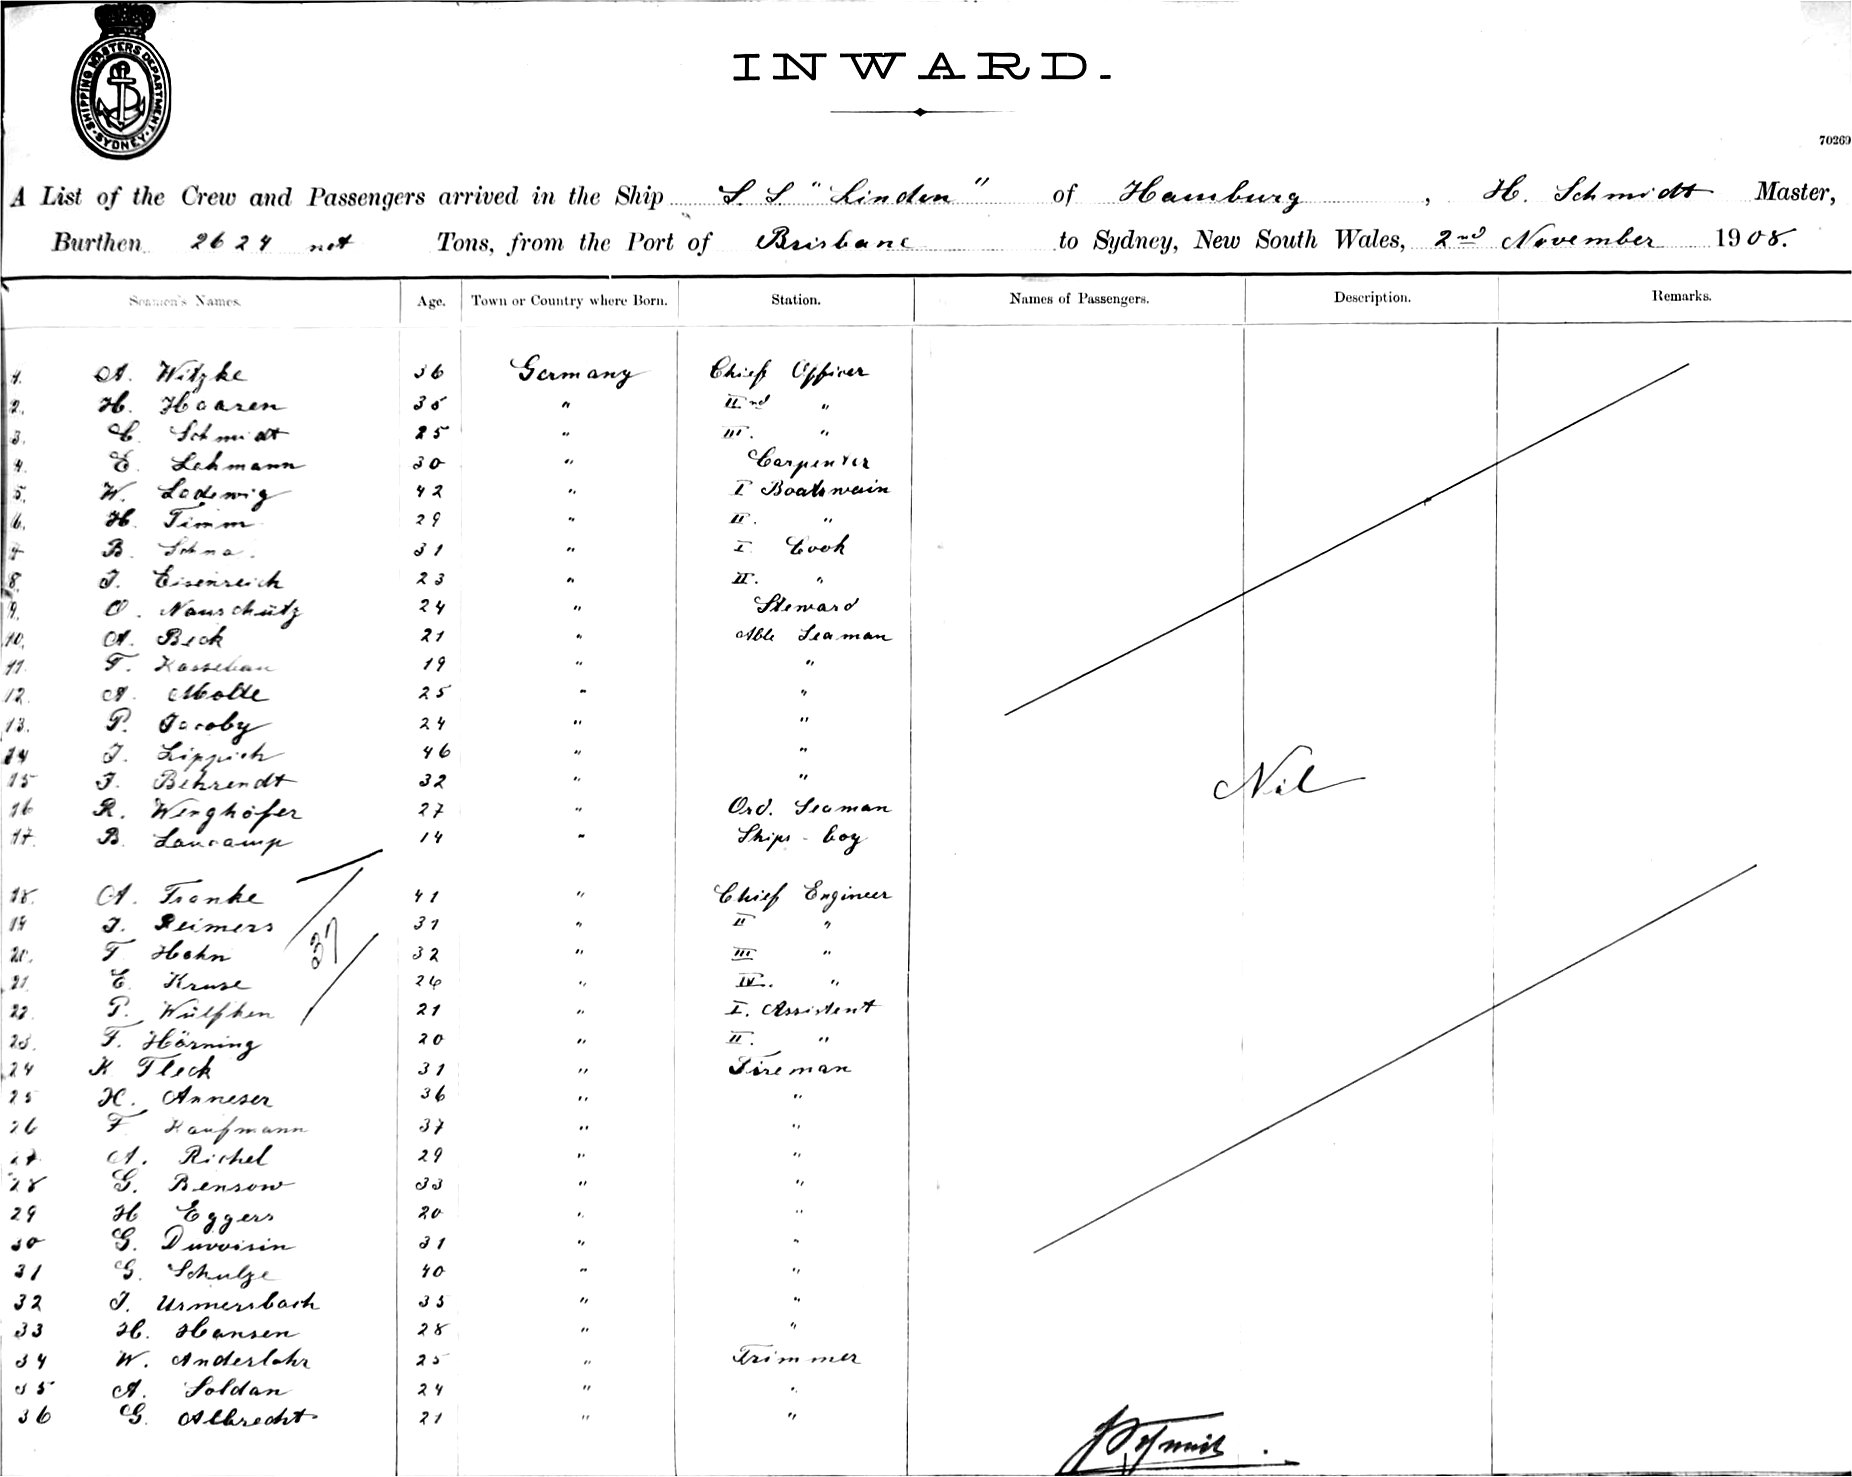 SHIPPING MASTERS DEPARTMENT
SYDNEY
INWARD.
70269
A List of the Crew and Passengers arrived in the Ship S. S. "Linden" of Hamburg, H. Schmidt Master,
Burthen 2624 net Tons, from the Port of Brisbane to Sydney, New South Wales, 2nd November 1908.
Seamen's Names. Age. Town or Country where Born. Station. Names of Passengers. Description. Remarks.
1. A. Witzke 36 Germany Chief Officer
2. H. Haaren 35 " IInd "
3. C. Schmidt 25 " III. "
4. E. Lehmann 30 " Carpenter
5. W. Lodewig 42 " I Boatswain
6. H. Timm 29 " II. "
7 B. 31 " I. Cook
8. J. Eisenreich 23 " II. "
9. O. Nauschütz 24 " Steward
10. A. Beck 21 " Able Seaman
11. F. 19 " "
12. A. Molle 25 " "
13. P. Jacoby 24 " "
14 J. Lippich 46 " "
15 J. Behrendt 32 " "
Nil
16 R. Winghöfer 27 " Ord. Seaman
17. B. Laucamp 14 " Ships-boy
18. A. Franke 41 " Chief Engineer
19 J. Reimers 31 " II "
37
20. F. Hahn 32 " III "
21. E. Kruse 26 " IV. "
22. P. Wülfken 21 " I. Assistent
23. F. Hörning 20 " II. "
24 K Fleck 31 " Fireman
25 H. Anneser 36 " "
26 F. Kaufmann 37 " "
27 A. Richel 29 " "
28 G. Bensow 33 " "
29 H Eggers 20 " "
30 G. Duvoisin 31 " "
31 G. Schulze 40 " "
32 J. Urmersbach 35 " "
33 H. Hansen 28 " "
34 W. Anderlohr 25 " Trimmer
35 A. Soldan 24 " "
36 G. Albrecht 21 " "